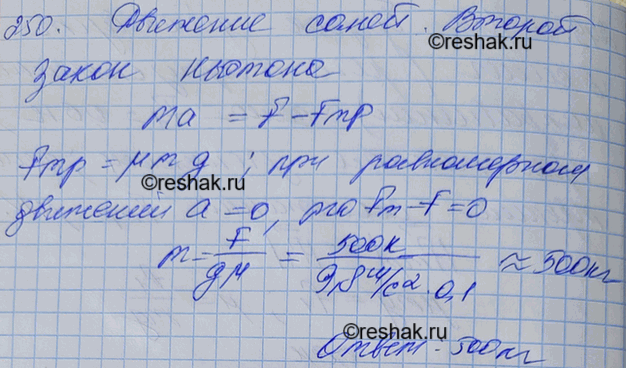 250. Движение саней. Второй
©reshak.ru
закон Ньютона
ma = F - Fтр
Fтр = μmg ; при равномерном
©reshak.ru
движений a = 0, то Fт - F = 0
m = F/gμ = 500к/9,8 м/с² · 0,1 ≈ 500 кг
©reshak.ru
Ответ: 500 кг